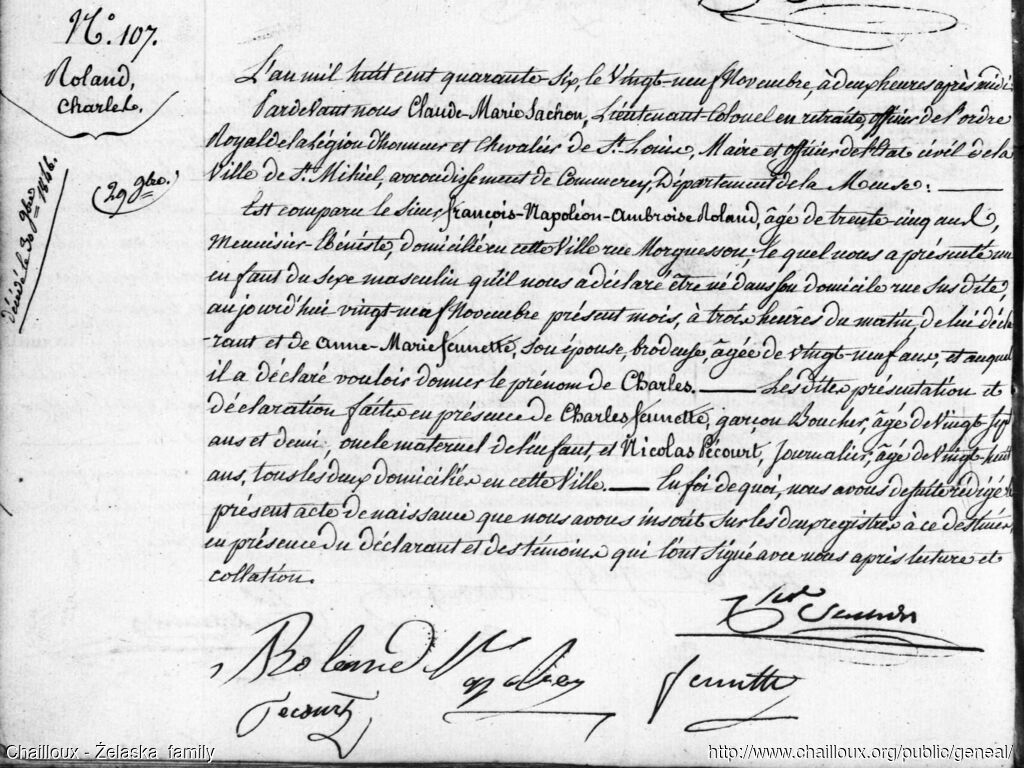 N.º 107.
Roland,
Charles.
(29 9bre.)
décédé le 30 9bre 1846.
L'an mil huit cent quarante six, le Vingt-neuf Novembre, à deux heures après midi
Pardevant nous Claude-Marie Sachon, Lieutenant-Colonel en retraite, officier de l'ordre
Royal de la Légion d'honneur et Chevalier de St. Louis, Maire et officier de l'Etat civil de la
Ville de St. Mihiel, arrondissement de Commercy, Département de la Meuse: ——
Est comparu le Sieur françois-Napoléon-Ambroise Roland, âgé de trente cinq ans,
Menuisier-Ebéniste, domicilié en cette Ville rue Morguesson; le quel nous a présenté un
enfant du sexe masculin qu'il nous a déclaré être né dans son domicile rue Sus dite,
aujourd'hui vingt-neuf Novembre présent mois, à trois heures du matin, de lui décla-
rant et de Anne-Marie Jennette, son épouse, brodeuse, âgée de vingt-neuf ans, et auquel
il a déclaré vouloir donner le prénom de Charles. —— Les dites présentation et
déclaration faites en présence de Charles Jennette, garçon Boucher, âgé de Vingt-sept
ans et demi, oncle maternel de l'enfant, et Nicolas Pécourt, Journalier, âgé de Vingt-huit
ans, tous les deux domiciliés en cette Ville. —— En foi de quoi, nous avons de suite rédigé le
présent acte de naissance que nous avons inscrit sur les deux registres à ce destinés,
en présence du déclarant et des témoins qui l'ont signé avec nous après lecture et
collation.
Roland
Jennette
Pécourt
Chailloux - Želaska family
http://www.chailloux.org/public/geneal/